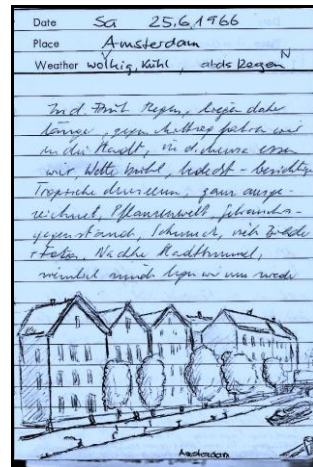 Date Sa 25.6.1966
Place Amsterdam
Weather wolkig, kühl, abds Regen N
In d. Früh Regen, liegen daher
länge, gegen Mittag fahren wir
in die Stadt, in d. Mensa essen
wir, Wetter kühl,
Tropische Museum, ganz ausge-
zeichnet, Pflanzenwelt, Gebrauchs-
gegenstand, Schmuck, viele Bilder
Nachher Stadtbummel,
wir uns
Amsterdam